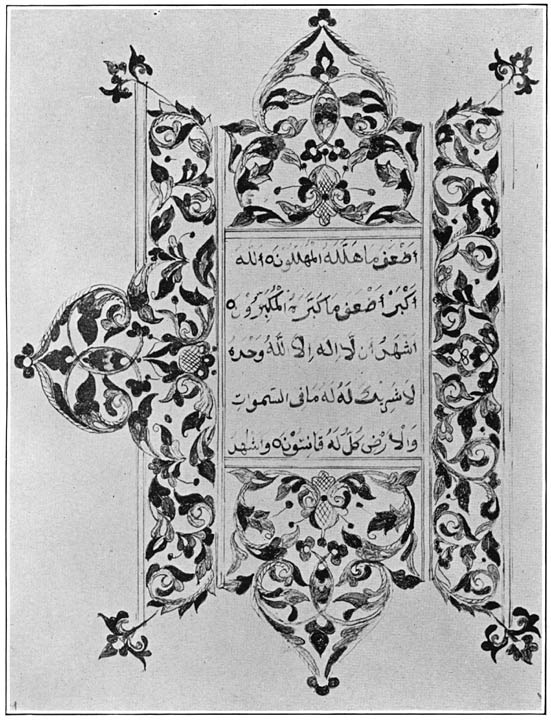 اَضْعٰفَ مَا هَلَّلَهُ الْمُهَلِّلُوْنَهْ اَللّٰهُ
اَكْبَرْ اَضْعٰفَ مَا كَبَّرَهُ الْمُكَبِّرُوْنَهْ
اَشْهَدُ اَنْ لَّا اِلٰهَ اِلَّا اللّٰهُ وَحْدَهُ
لَا شَرِيْكَ لَهُ لَهُ مَا فِى السَّمٰوٰتِ
وَالْاَرْضِ كُلٌّ لَهُ قَانِتُوْنَهْ وَاشْهَدُ